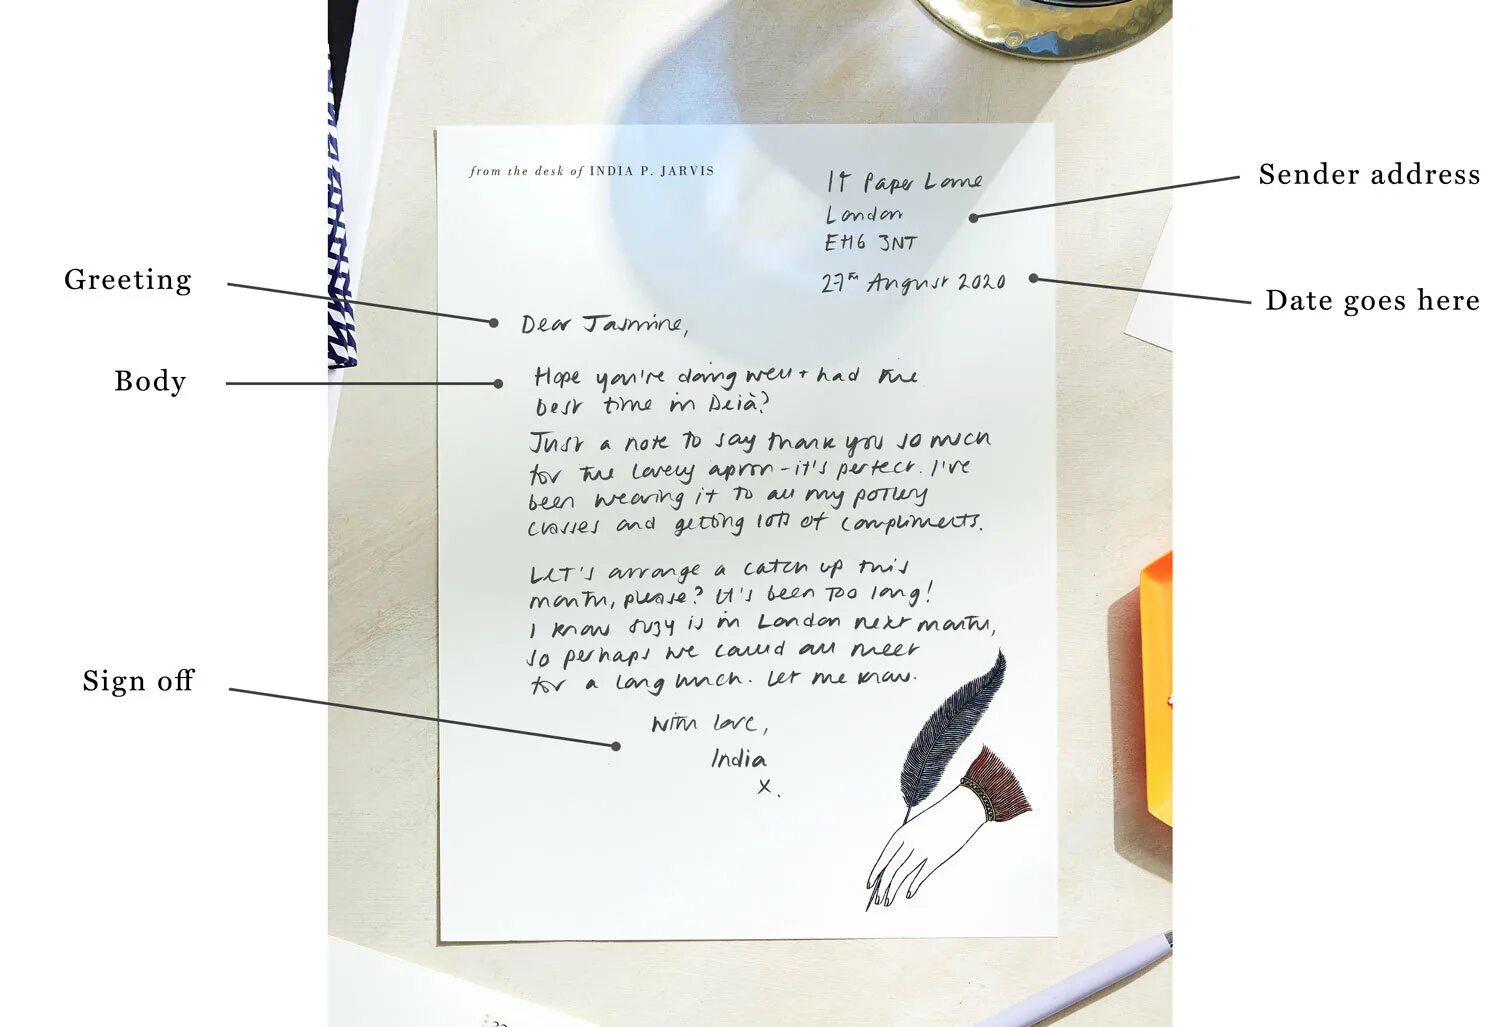 from the desk of INDIA P. JARVIS
17 Paper Lane
London
EH6 3NT
Sender address
27th August 2020
Date goes here
Greeting
Dear Jasmine,
Body
Hope you're doing well + had the
best time in Deià?
Just a note to say thank you so much
for the lovely apron - it's perfect. I've
been wearing it to all my pottery
classes and getting lots of compliments.
Let's arrange a catch up this
month, please? It's been too long!
I know Suzy is in London next month,
so perhaps we could all meet
for a long lunch. Let me know.
Sign off
With love,
India
x.